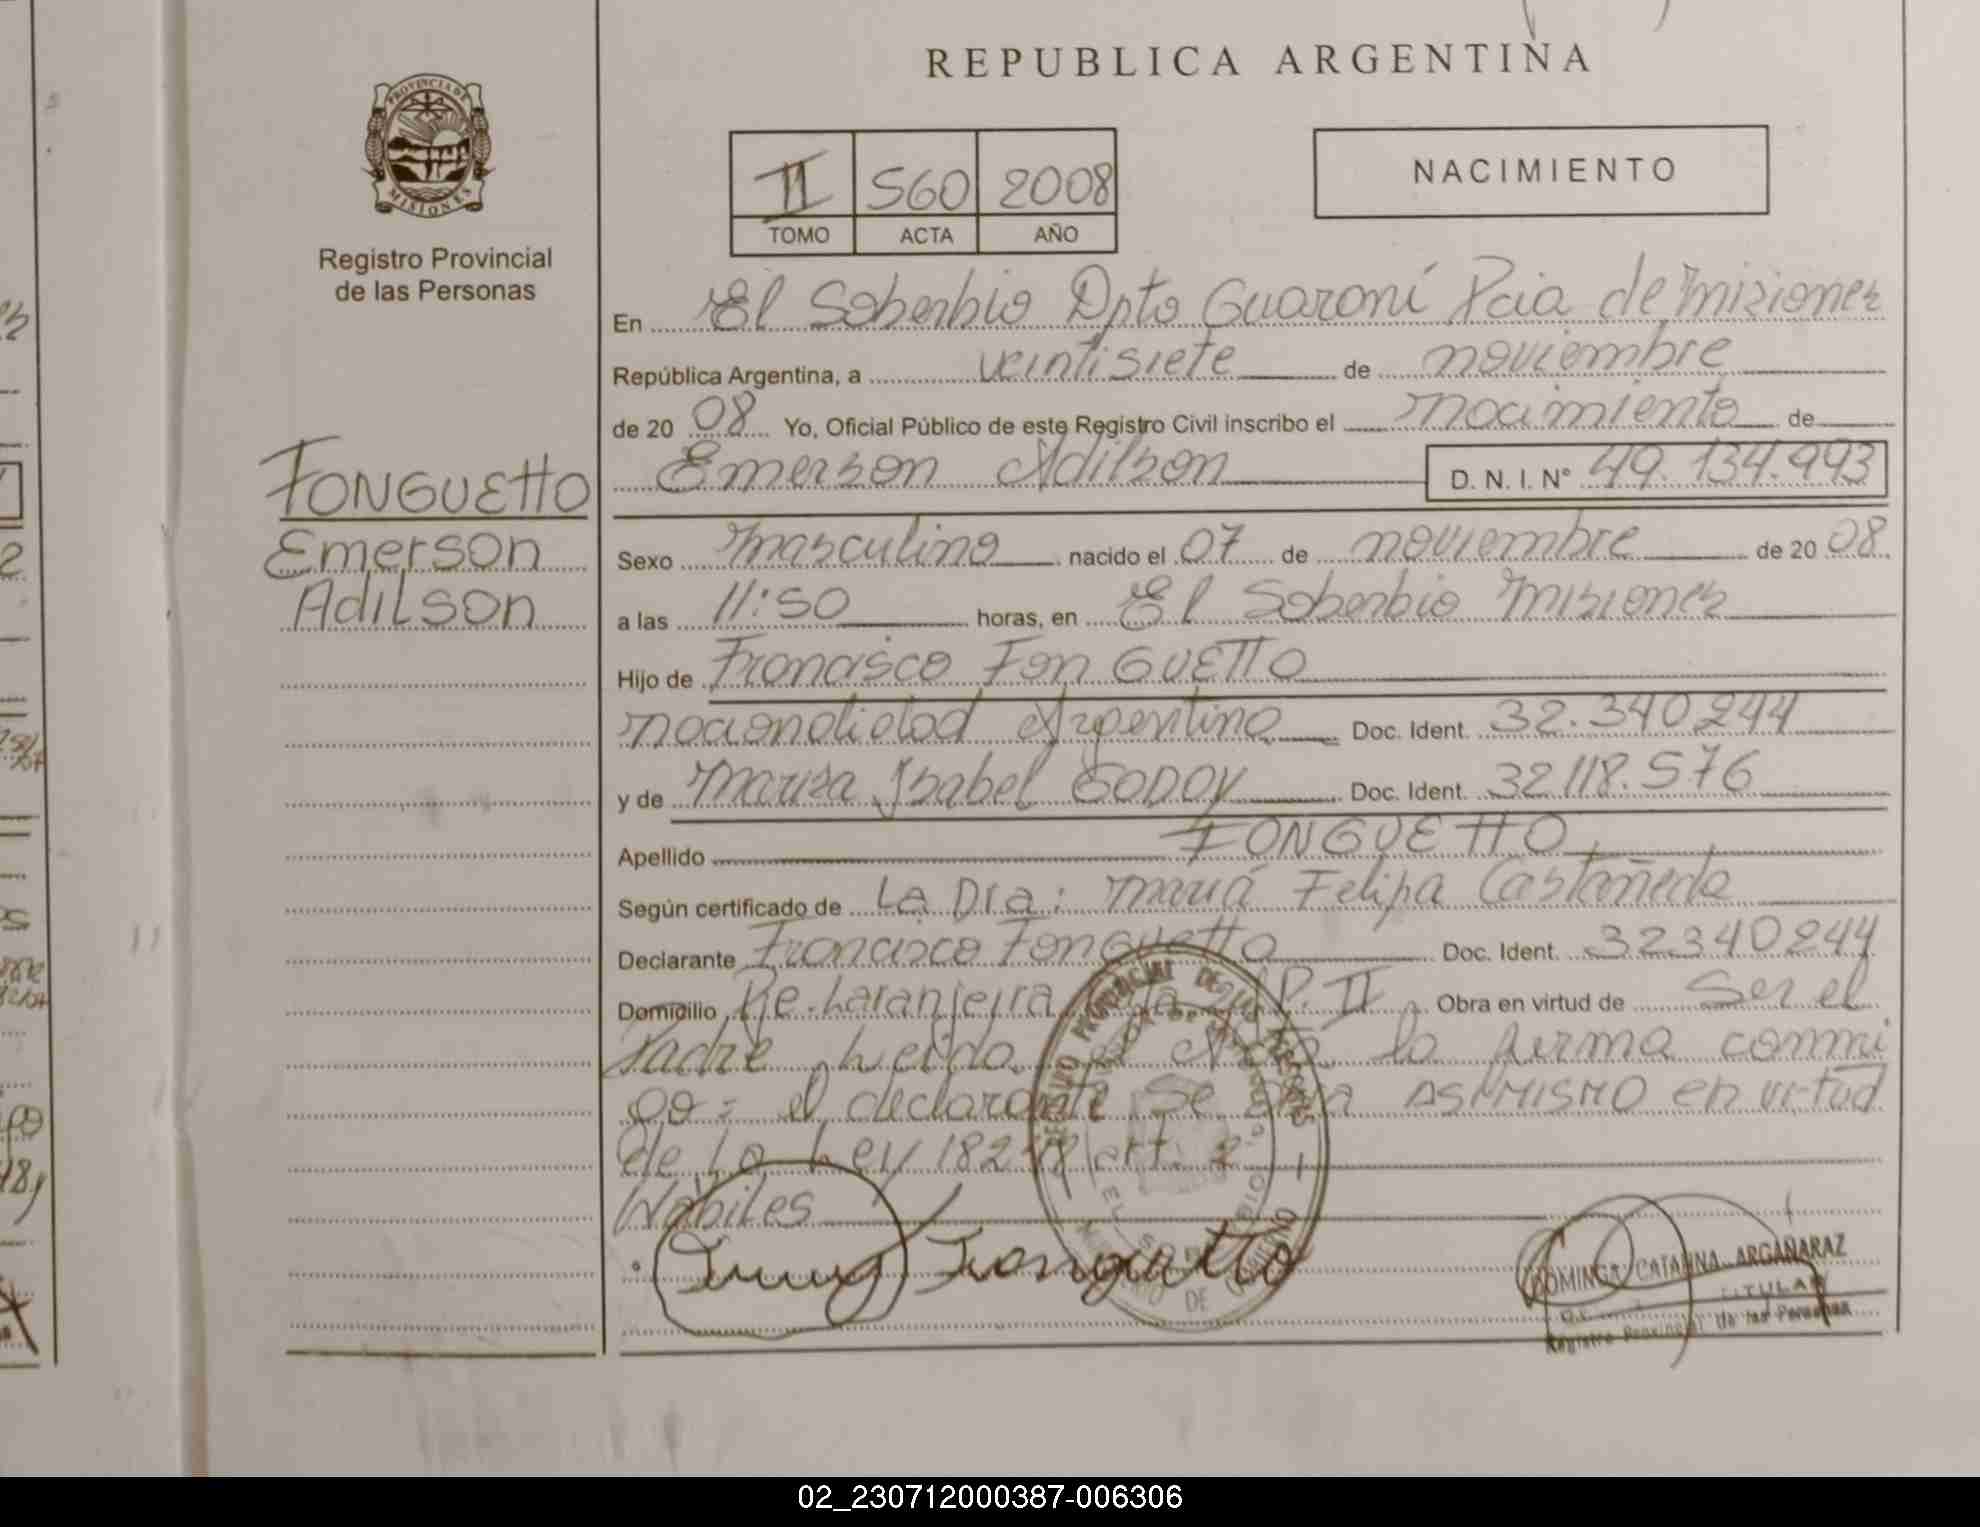 REPUBLICA ARGENTINA
PROVINCIA DE
MISIONES
Registro Provincial
de las Personas
II 560 2008
TOMO ACTA AÑO
NACIMIENTO
FONGUETTO
Emerson
Adilson
En El Soberbio Dpto Guaraní Pcia de misiones
República Argentina, a veintisiete de noviembre
de 2008 Yo, Oficial Público de este Registro Civil inscribo el nacimiento de
Emerson Adilson D.N.I. Nº 49.134.993
Sexo masculino nacido el 07 de noviembre de 2008
a las 11:50 horas, en El Soberbio misiones
Hijo de Francisco Fonguetto
nacionalidad Argentina Doc. Ident. 32.340244
y de Marisa Isabel GODOY Doc. Ident. 32118.576
Apellido FONGUETTO
Según certificado de La Dra: maria Felipa Castañeda
Declarante Francisco Fonguetto Doc. Ident. 32340244
Domicilio Pje. Laranjeira P. II Obra en virtud de Ser el
Padre Leida la firma conmi
go = el declarante se ASIMISMO en virtud
de la Ley 18248 art. 2
Wabiles
Fonguetto
EL SOBERBIO
MINISTERIO DE GOBIERNO
DOMINGA CATALINA ARGAÑARAZ
TITULAR
Registro Provincial de las Personas
02_230712000387-006306